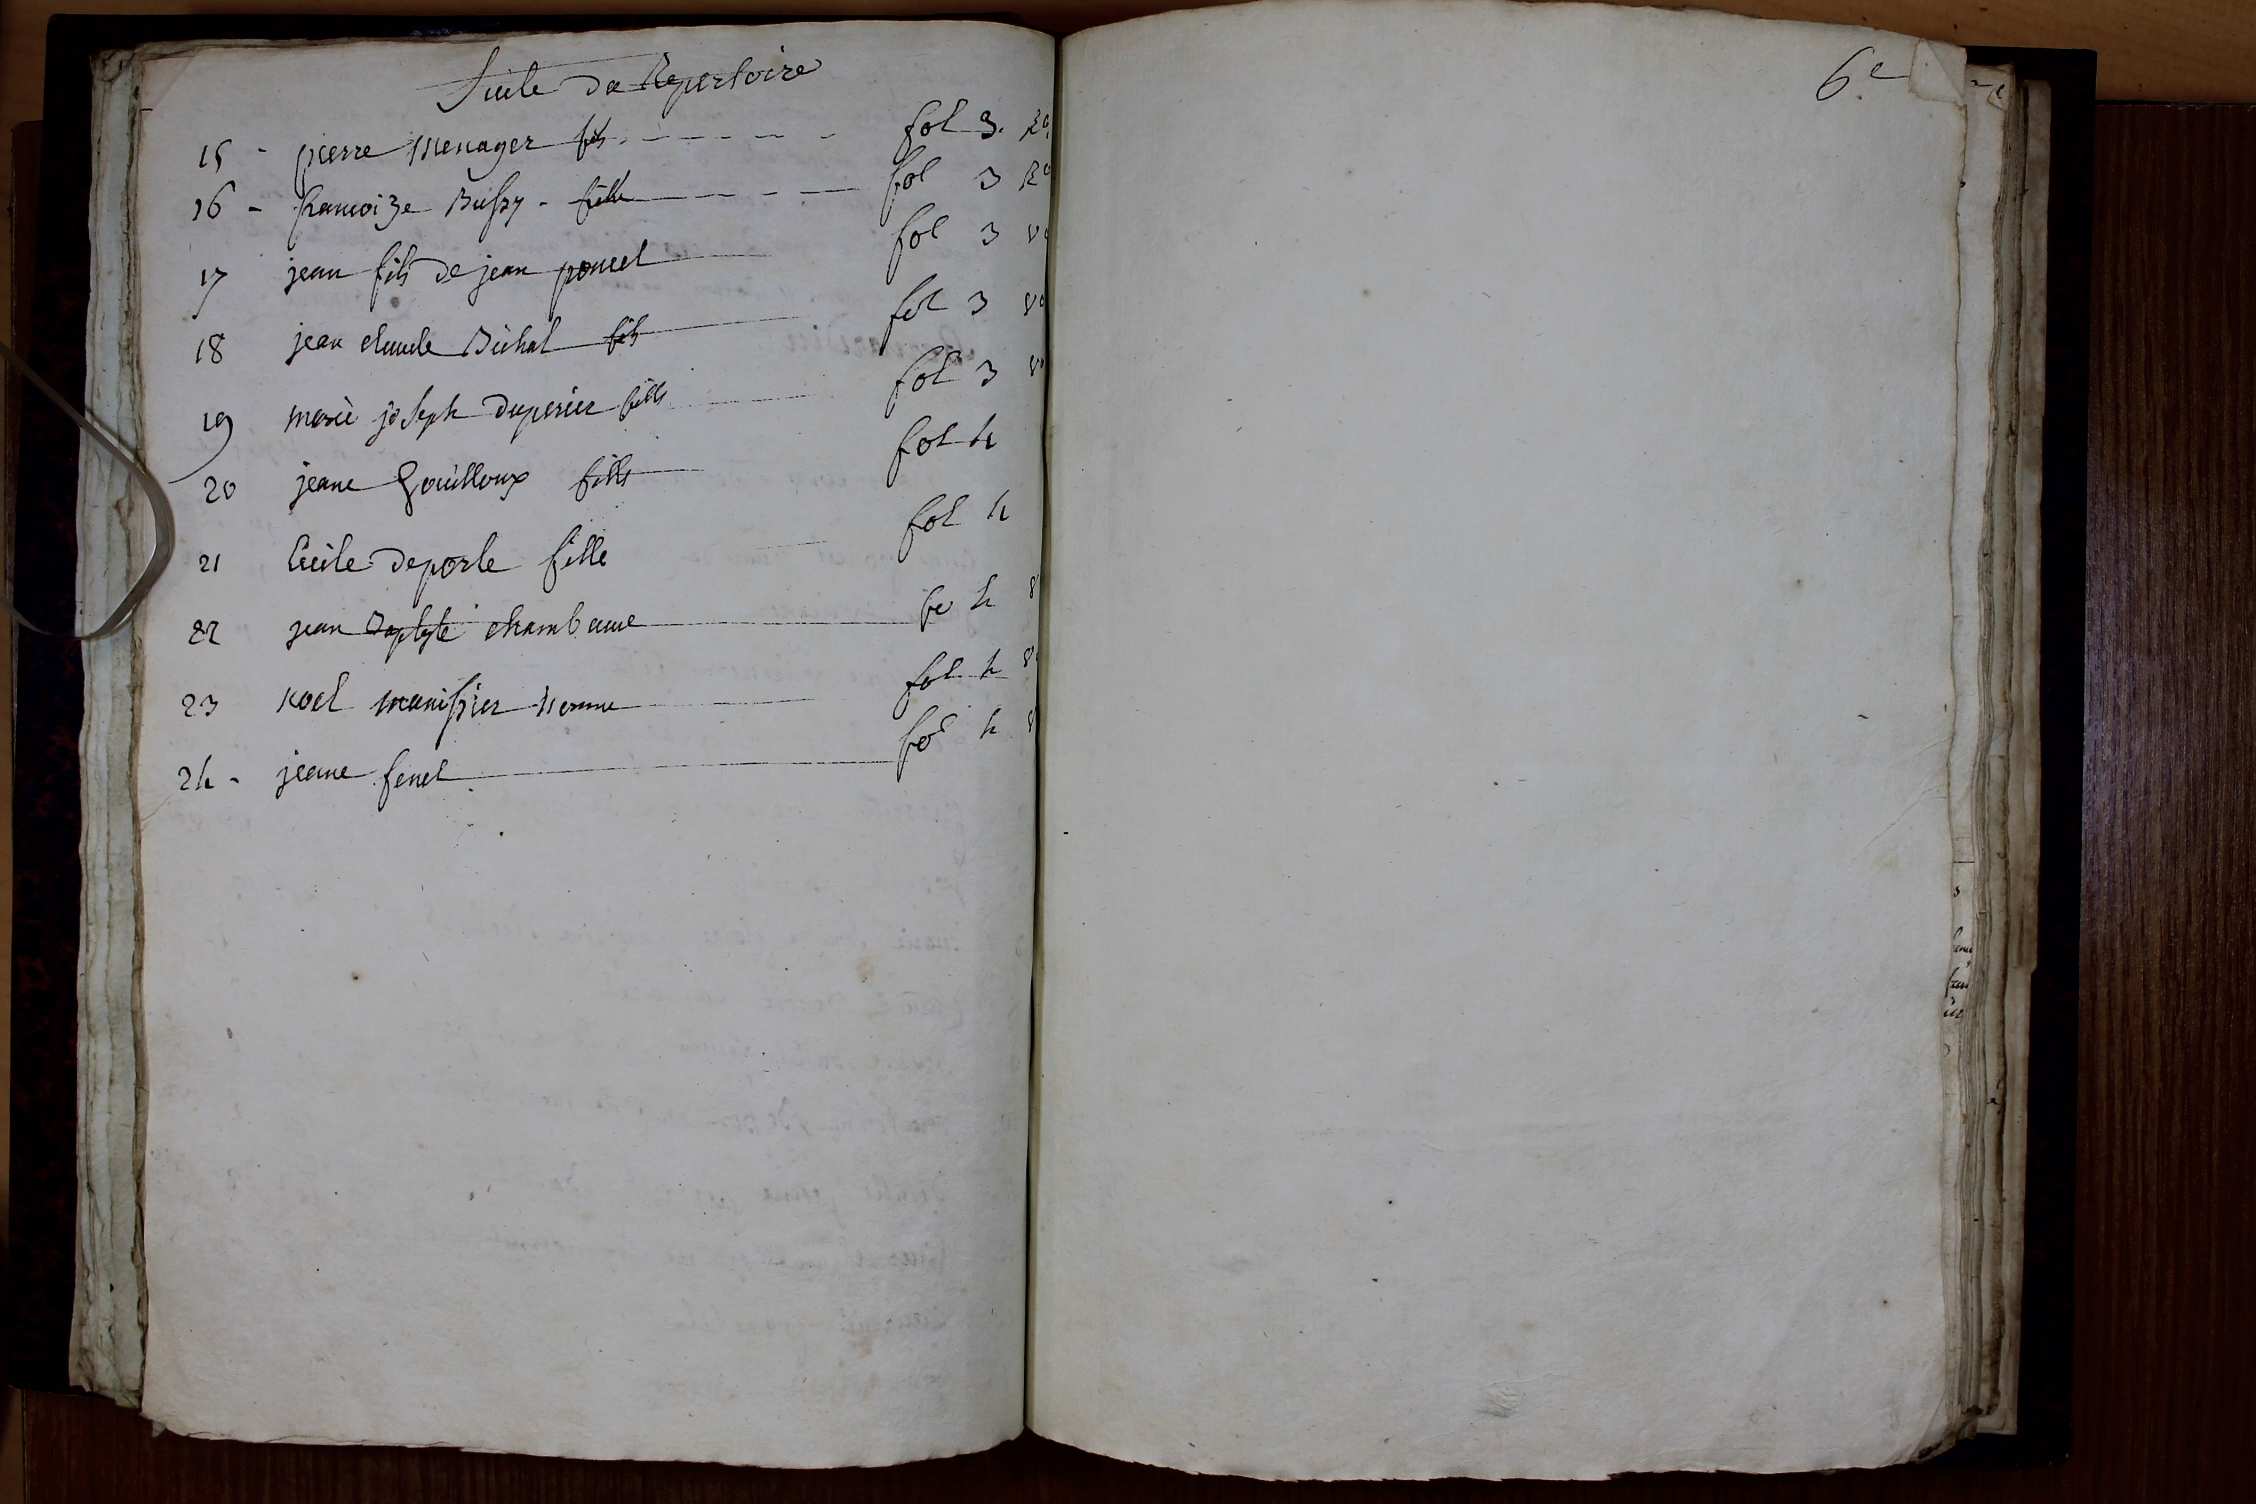 Suite du Repertoire
15 - pierre Menager fils - - - - - fol 3. Ro
16 - francoize Bussy - fille - - - - fol 3 Ro
17 jean fils de jean poncet fol 3 vo
18 jean claude Bichat fils fol 3 vo
19 marie joseph duperier fille fol 3 vo
20 jeane Gouilloux fille fol 4
21 Cecile deporte fille fol 4
22 jean Baptyte chambeau fo 4 v
23 Noel manissier homme fol 4 vo
24 - jeane fenet fol 4 v
6e